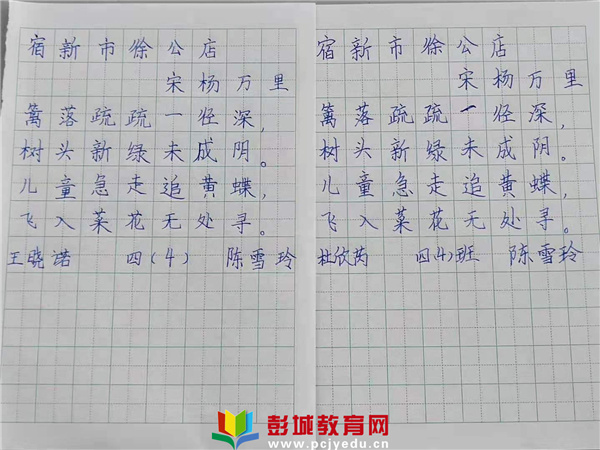 宿新市徐公店
宋杨万里
篱落疏疏一径深，
树头新绿未成阴。
儿童急走追黄蝶，
飞入菜花无处寻。
王晓诺 四(4) 陈雪玲
宿新市徐公店
宋杨万里
篱落疏疏一径深，
树头新绿未成阴。
儿童急走追黄蝶，
飞入菜花无处寻。
杜欣芮 四(4)班 陈雪玲
彭城教育网
www.pcjyedu.cn